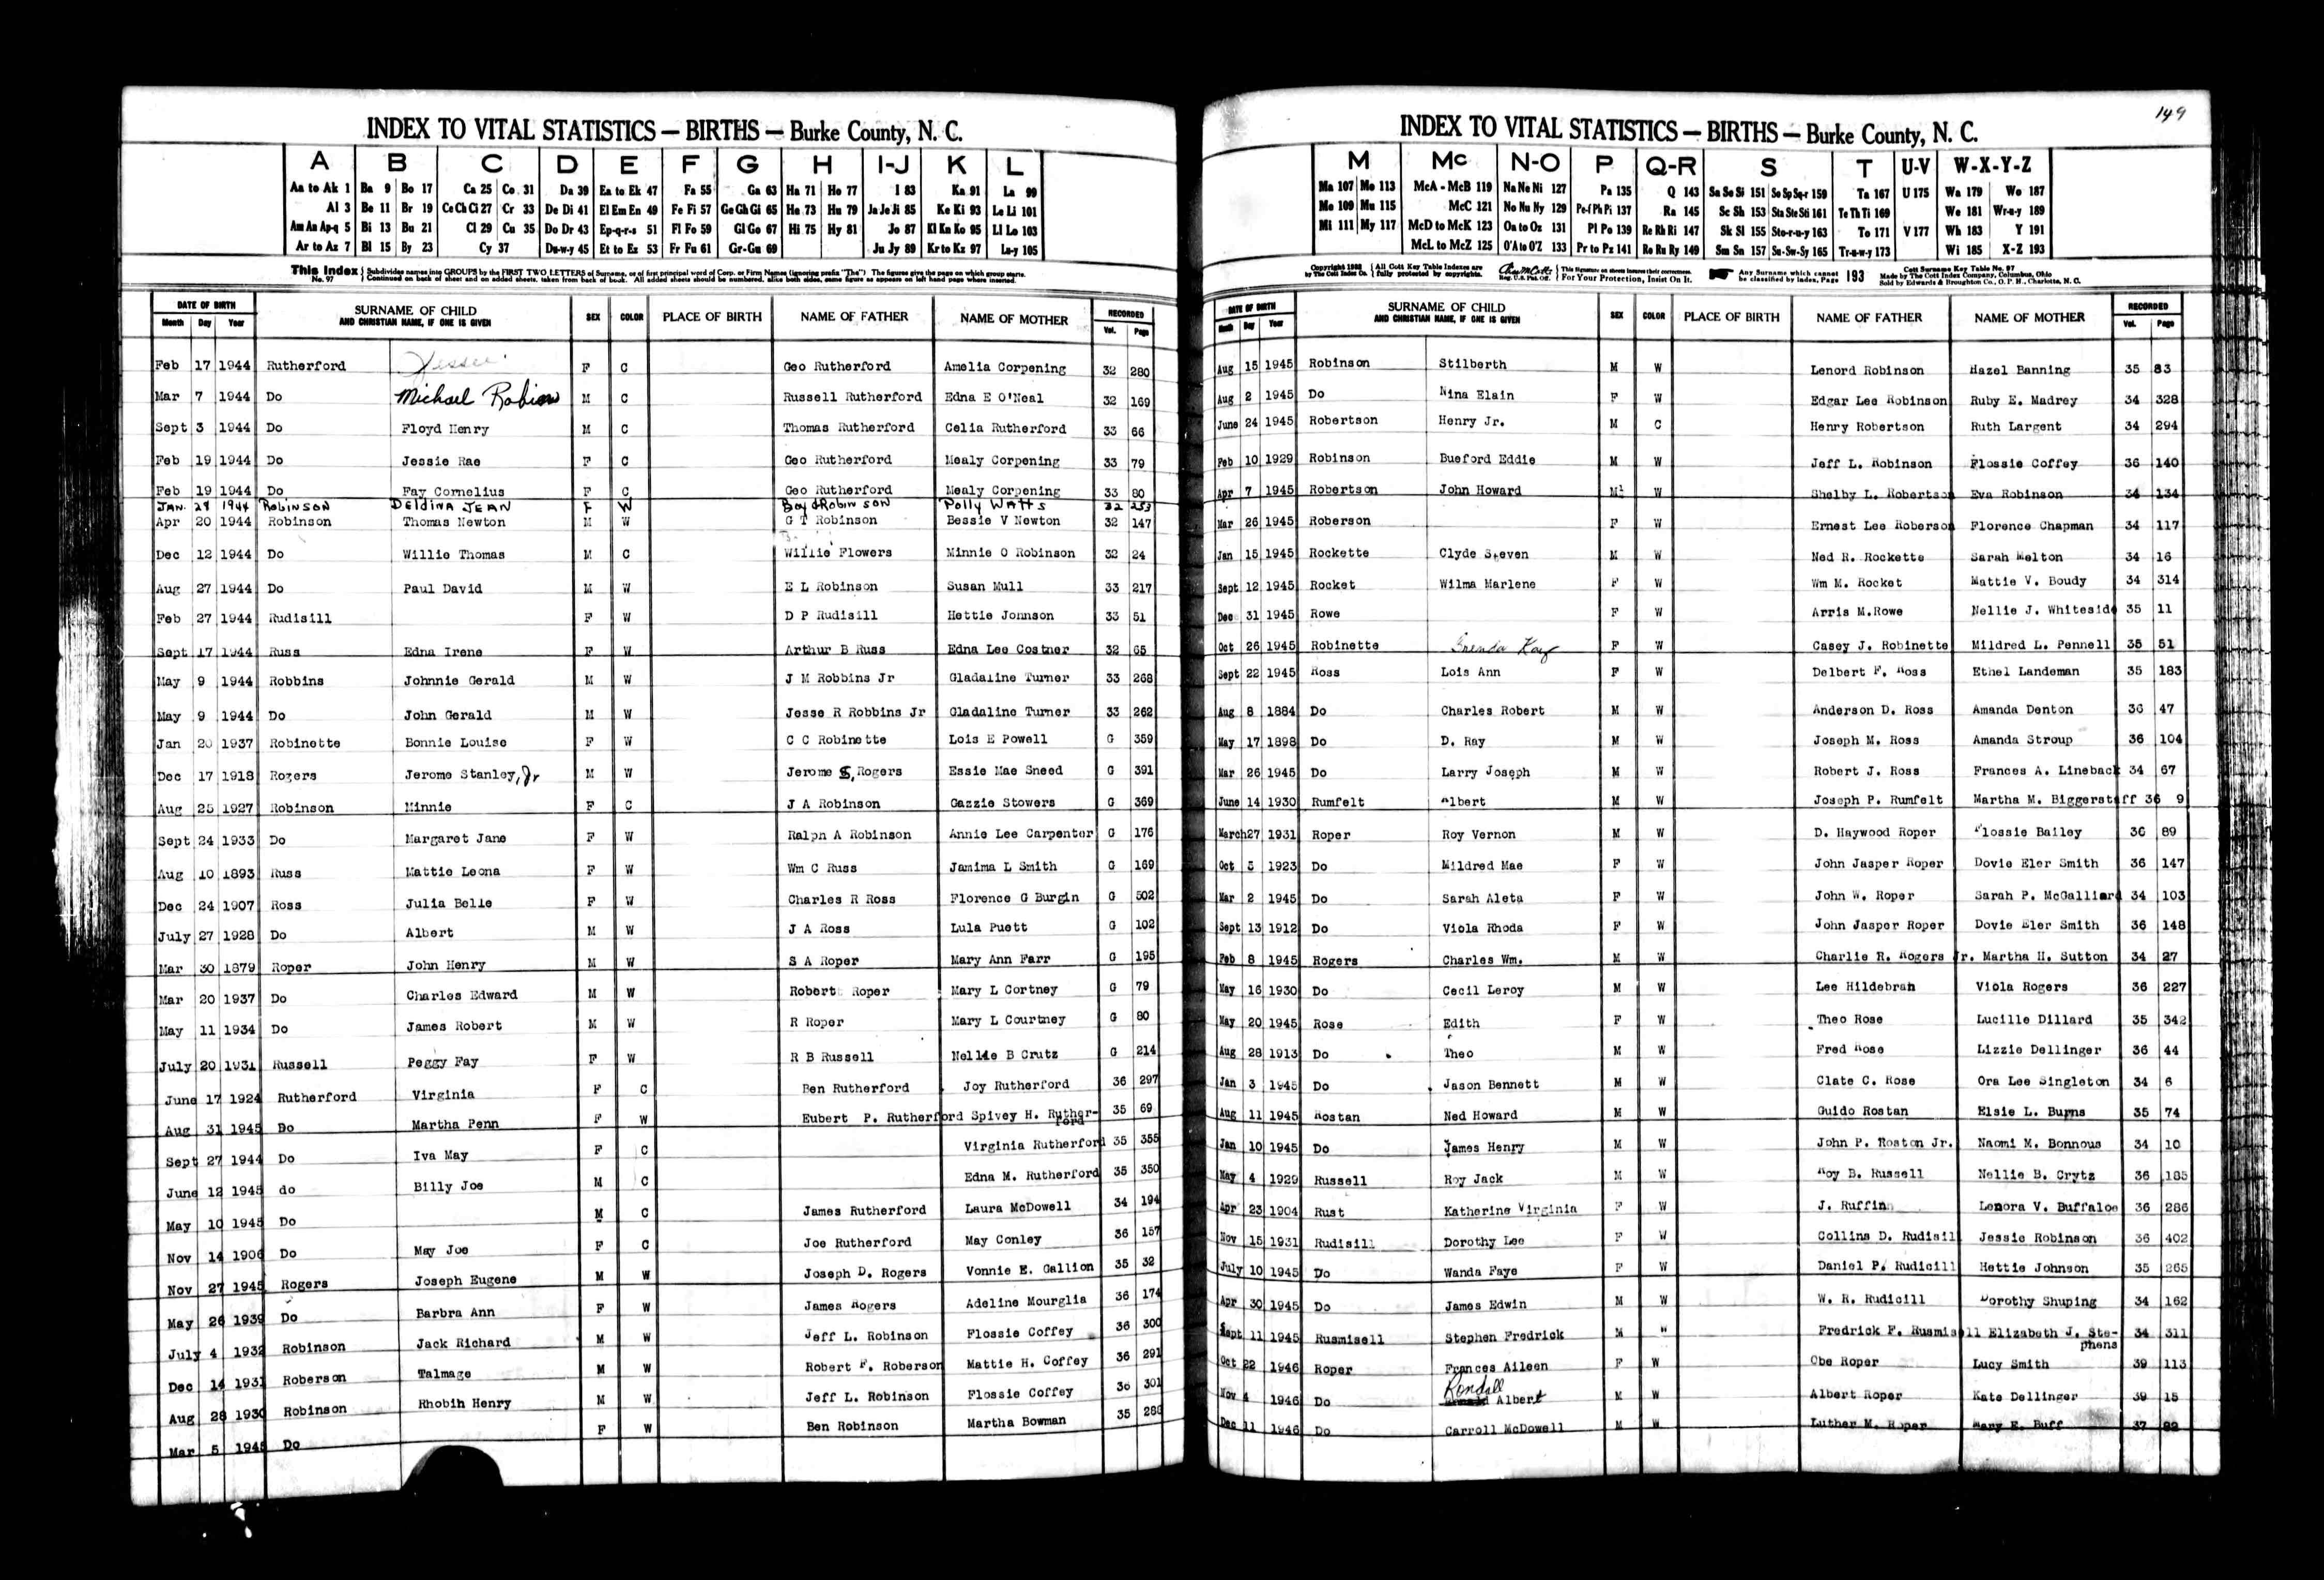 149
INDEX TO VITAL STATISTICS — BIRTHS — Burke County, N. C.
A B C D E F G H I-J K L
Aa to Ak 1 Ba 9 Bo 17 Ca 25 Co 31 Da 39 Ea to Ek 47 Fa 55 Ga 63 Ha 71 Ho 77 I 83 Ka 91 La 99
Al 3 Be 11 Br 19 Ce Ch Ci 27 Cr 33 De Di 41 El Em En 49 Fe Fi 57 Ge Gh Gi 65 He 73 Hu 79 Ja Je Ji 85 Ke Ki 93 Le Li 101
Am An Ap-q 5 Bi 13 Bu 21 Cl 29 Cu 35 Do Dr 43 Ep-q-r-s 51 Fl Fo 59 Gl Go 67 Hi 75 Hy 81 Jo 87 Kl Kn Ko 95 Ll Lo 103
Ar to Az 7 Bl 15 By 23 Cy 37 Du-w-y 45 Et to Ez 53 Fr Fu 61 Gr-Gu 69 Ju Jy 89 Kr to Kz 97 Lu-y 105
This Index No. 97 Subdivides names into GROUPS by the FIRST TWO LETTERS of Surname, or of first principal word of Corp. or Firm Names (ignoring prefix "The") The figures give the page on which group starts.
Continued on back of sheet and on added sheets, taken from back of book. All added sheets should be numbered, alike both sides, same figure as appears on left hand page where inserted.
DATE OF BIRTH SURNAME OF CHILD AND CHRISTIAN NAME, IF ONE IS GIVEN SEX COLOR PLACE OF BIRTH NAME OF FATHER NAME OF MOTHER RECORDED
Month Day Year Vol. Page
Feb 17 1944 Rutherford Jessee F C Geo Rutherford Amelia Corpening 32 280
Mar 7 1944 Do Michael Robinson M C Russell Rutherford Edna E O'Neal 32 169
Sept 3 1944 Do Floyd Henry M C Thomas Rutherford Celia Rutherford 33 66
Feb 19 1944 Do Jessie Rae F C Geo Rutherford Mealy Corpening 33 79
Feb 19 1944 Do Fay Cornelius F C Geo Rutherford Mealy Corpening 33 80
JAN. 29 1944 Robinson DELdiNA JEAN F W Boyd Robinson Polly Watts 32 253
Apr 20 1944 Robinson Thomas Newton M W G T Robinson Bessie V Newton 32 147
Dec 12 1944 Do Willie Thomas M C Willie Flowers Minnie O Robinson 32 24
Aug 27 1944 Do Paul David M W E L Robinson Susan Mull 33 217
Feb 27 1944 Rudisill F W D P Rudisill Hettie Johnson 33 51
Sept 17 1944 Russ Edna Irene F W Arthur B Russ Edna Lee Costner 32 65
May 9 1944 Robbins Johnnie Gerald M W J M Robbins Jr Gladaline Turner 33 268
May 9 1944 Do John Gerald M W Jesse R Robbins Jr Gladaline Turner 33 262
Jan 20 1937 Robinette Bonnie Louise F W C C Robinette Lois E Powell G 359
Dec 17 1918 Rogers Jerome Stanley, Jr M W Jerome S, Rogers Essie Mae Sneed G 391
Aug 25 1927 Robinson Minnie F C J A Robinson Gazzie Stowers G 369
Sept 24 1933 Do Margaret Jane F W Ralph A Robinson Annie Lee Carpenter G 176
Aug 10 1893 Russ Mattie Leona F W Wm C Russ Jamima L Smith G 169
Dec 24 1907 Ross Julia Belle F W Charles R Ross Florence G Burgin G 502
July 27 1928 Do Albert M W J A Ross Lula Puett G 102
Mar 30 1879 Roper John Henry M W S A Roper Mary Ann Farr G 195
Mar 20 1937 Do Charles Edward M W Robert Roper Mary L Cortney G 79
May 11 1934 Do James Robert M W R Roper Mary L Courtney G 80
July 20 1931 Russell Peggy Fay F W R B Russell Nellie B Crutz G 214
June 17 1924 Rutherford Virginia F C Ben Rutherford Joy Rutherford 36 297
Aug 31 1945 Do Martha Penn F W Eubert P. Rutherford Spivey H. Ruther-ford 35 69
Sept 27 1944 Do Iva May F C Virginia Rutherford 35 355
June 12 1945 do Billy Joe M C Edna M. Rutherford 35 350
May 10 1945 Do M C James Rutherford Laura McDowell 34 194
Nov 14 1906 Do May Joe F C Joe Rutherford May Conley 36 157
Nov 27 1945 Rogers Joseph Eugene M W Joseph D. Rogers Vonnie E. Gallion 35 32
May 26 1939 Do Barbra Ann F W James Rogers Adeline Mourglia 36 174
July 4 1932 Robinson Jack Richard M W Jeff L. Robinson Flossie Coffey 36 300
Dec 14 1931 Roberson Talmage M W Robert F. Roberson Mattie H. Coffey 36 291
Aug 28 1930 Robinson Rhobin Henry M W Jeff L. Robinson Flossie Coffey 36 301
Mar 5 1945 Do F W Ben Robinson Martha Bowman 35 286
INDEX TO VITAL STATISTICS — BIRTHS — Burke County, N. C.
M Mc N-O P Q-R S T U-V W-X-Y-Z
Ma 107 Mo 113 McA - McB 119 Na Ne Ni 127 Pa 135 Q 143 Sa Se Si 151 So Sp Sq-r 159 Ta 167 U 175 Wa 179 Wo 187
Me 109 Mu 115 McC 121 No Nu Ny 129 Pe-f Ph Pi 137 Ra 145 Sc Sh 153 Sta Ste Sti 161 Te Th Ti 169 We 181 Wr-u-y 189
Mi 111 My 117 McD to McK 123 On to Oz 131 Pl Po 139 Re Rh Ri 147 Sk Sl 155 Sto-r-u-y 163 To 171 V 177 Wh 183 Y 191
McL to McZ 125 O'A to O'Z 133 Pr to Pz 141 Ro Ru Ry 149 Sm Sn 157 Su-Sw-Sy 165 Tr-u-w-y 173 Wi 185 X-Z 193
by The Cott Index Co. All Cott Key Table Indexes are fully protected by copyrights. This signature on sheets insures their correctness. For Your Protection, Insist On It. Any Surname which cannot be classified by index, Page 193 Cott Surname Key Table No. 97
Made by The Cott Index Company, Columbus, Ohio
Sold by Edwards & Broughton Co., O. P. H., Charlotte, N. C.
DATE OF BIRTH SURNAME OF CHILD AND CHRISTIAN NAME, IF ONE IS GIVEN SEX COLOR PLACE OF BIRTH NAME OF FATHER NAME OF MOTHER RECORDED
Month Day Year Vol. Page
Aug 15 1945 Robinson Stilberth M W Lenord Robinson Hazel Banning 35 83
Aug 2 1945 Do Nina Elain F W Edgar Lee Robinson Ruby E. Madrey 34 328
June 24 1945 Robertson Henry Jr. M C Henry Robertson Ruth Largent 34 294
Feb 10 1929 Robinson Bueford Eddie M W Jeff L. Robinson Flossie Coffey 36 140
Apr 7 1945 Robertson John Howard M W Shelby L. Robertson Eva Robinson 34 134
Mar 26 1945 Roberson F W Ernest Lee Roberson Florence Chapman 34 117
Jan 15 1945 Rockette Clyde Steven M W Ned R. Rockette Sarah Melton 34 16
Sept 12 1945 Rocket Wilma Marlene F W Wm M. Rocket Mattie V. Boudy 34 314
Dec 31 1945 Rowe F W Arris M.Rowe Nellie J. Whiteside 35 11
Oct 26 1945 Robinette Brenda Kay F W Casey J. Robinette Mildred L. Pennell 35 51
Sept 22 1945 Ross Lois Ann F W Delbert F. Ross Ethel Landeman 35 183
Aug 8 1884 Do Charles Robert M W Anderson D. Ross Amanda Denton 36 47
May 17 1898 Do D. Ray M W Joseph M. Ross Amanda Stroup 36 104
Mar 26 1945 Do Larry Joseph M W Robert J. Ross Frances A. Lineback 34 67
June 14 1930 Rumfelt Albert M W Joseph P. Rumfelt Martha M. Biggerstaff 36 9
March 27 1931 Roper Roy Vernon M W D. Haywood Roper Flossie Bailey 36 89
Oct 5 1923 Do Mildred Mae F W John Jasper Roper Dovie Eler Smith 36 147
Mar 2 1945 Do Sarah Aleta F W John W. Roper Sarah P. McGalliard 34 103
Sept 13 1912 Do Viola Rhoda F W John Jasper Roper Dovie Eler Smith 36 148
Feb 8 1945 Rogers Charles Wm. M W Charlie R. Rogers Jr. Martha H. Sutton 34 27
May 16 1930 Do Cecil Leroy M W Lee Hildebran Viola Rogers 36 227
May 20 1945 Rose Edith F W Theo Rose Lucille Dillard 35 342
Aug 28 1913 Do Theo M W Fred Rose Lizzie Dellinger 36 44
Jan 3 1945 Do Jason Bennett M W Clate C. Rose Ora Lee Singleton 34 6
Aug 11 1945 Rostan Ned Howard M W Guido Rostan Elsie L. Burns 35 74
Jan 10 1945 Do James Henry M W John P. Roston Jr. Naomi M. Bonnous 34 10
May 4 1929 Russell Roy Jack M W Roy B. Russell Nellie B. Crytz 36 185
Apr 23 1904 Rust Katherine Virginia F W J. Ruffin Lenora V. Buffaloe 36 286
Nov 15 1931 Rudisill Dorothy Lee F W Collins D. Rudisil Jessie Robinson 36 402
July 10 1945 Do Wanda Faye F W Daniel P. Rudicill Hettie Johnson 35 265
Apr 30 1945 Do James Edwin M W W. R. Rudicill Dorothy Shuping 34 162
Sept 11 1945 Rusmisell Stephen Fredrick M W Fredrick F. Rusmisell Elizabeth J. Ste-phens 34 311
Oct 22 1946 Roper Frances Aileen F W Obe Roper Lucy Smith 39 113
Nov 4 1946 Do Rondall Albert M W Albert Roper Kate Dellinger 39 15
Dec 11 1946 Do Carroll McDowell M W Luther M. Roper Mary E. Buff 37 82